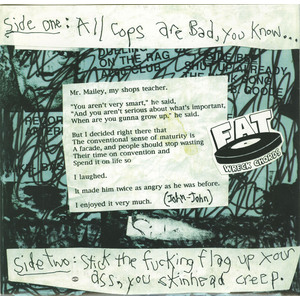 Side one: All Cops are Bad, you know...
ON THE RAG
Mr. Mailey, my shops teacher.
"You aren't very smart," he said,
"And you aren't serious about what's important,
When are you gonna grow up," he said.
But I decided right there that
The conventional sense of maturity is
A facade, and people should stop wasting
Their time on convention and
Spend it on life so
I laughed.
It made him twice as angry as he was before.
I enjoyed it very much.
(John-John)
FAT
WRECK CHORDS
Side two: Stick the fucking flag up your
ass, you skinhead creep.